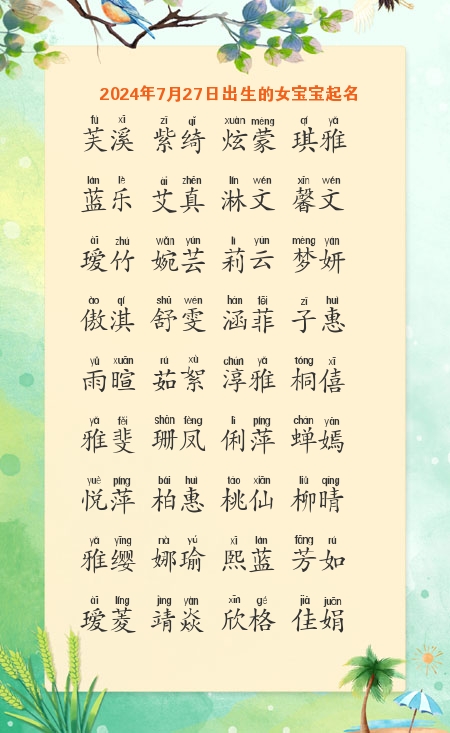 2024年7月27日出生的女宝宝起名
fú xī zǐ qǐ xuàn méng qí yǎ
芙溪 紫绮 炫蒙 琪雅
lán lè ài zhēn lín wén xīn wén
蓝乐 艾真 淋文 馨文
ài zhú wǎn yún lì yún mèng yán
瑷竹 婉芸 莉云 梦妍
ào qí shū wén hán fēi zǐ huì
傲淇 舒雯 涵菲 子惠
yǔ xuān rú xù chún yǎ tóng xī
雨暄 茹絮 淳雅 桐僖
yǎ fěi shān fèng lì píng chán yān
雅斐 珊凤 俐萍 蝉嫣
yuè píng bǎi huì táo xiān liǔ qíng
悦萍 柏惠 桃仙 柳晴
yǎ yīng nà yú xī lán fāng rú
雅缨 娜瑜 熙蓝 芳如
ài líng jìng yàn xīn gé jiā juān
瑷菱 靖焱 欣格 佳娟